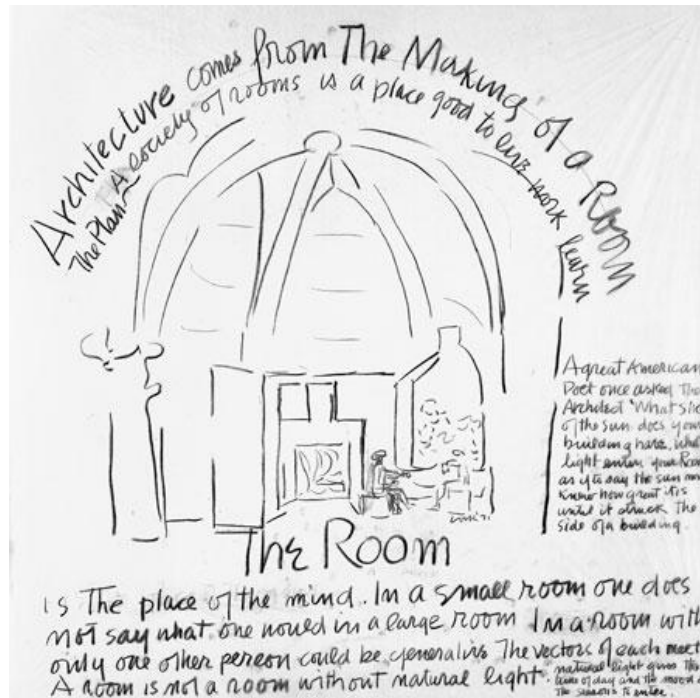 Architecture comes from The Making of a Room
The Plan - A society of rooms is a place good to live work learn
A great American
Poet once asked The
Architect 'What sli
of the sun does your
building have. What
light enters your Room
as if to say the sun
Knew how great it is
until it struck The
side of a building.
The Room
is The place of the mind. In a small room one does
not say what one would in a large room In a room with
only one other person could be generative The vectors of each meet
A room is not a room without natural light.
natural light gives The
time of day and the mood of
The seasons to enter.